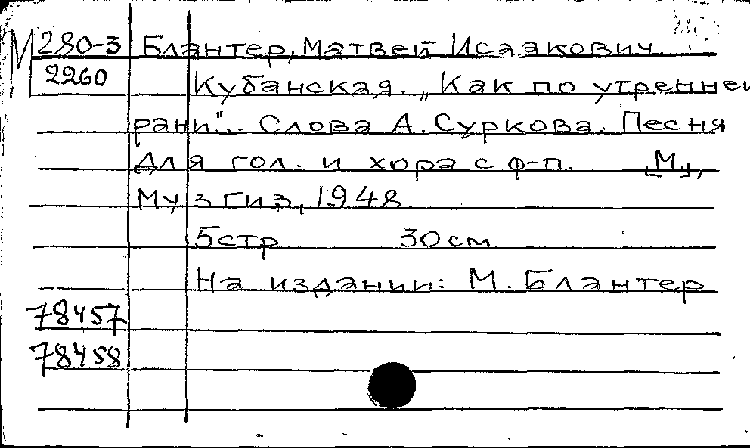 М 280-3 Блантер, Матвей Исаакович.
2260 Кубанская. „Как по утренней
рани". Слова А. Суркова. Песня
для гол. и хора с ф-п. [М],
Музгиз, 1948.
5 стр 30 см.
На издании: М. Блантер
78457
78458